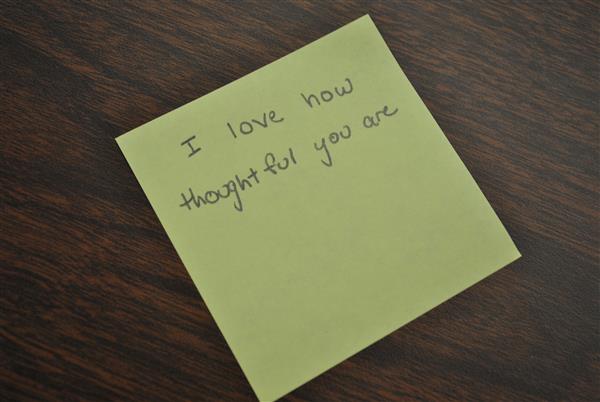 I love how
thoughtful you are